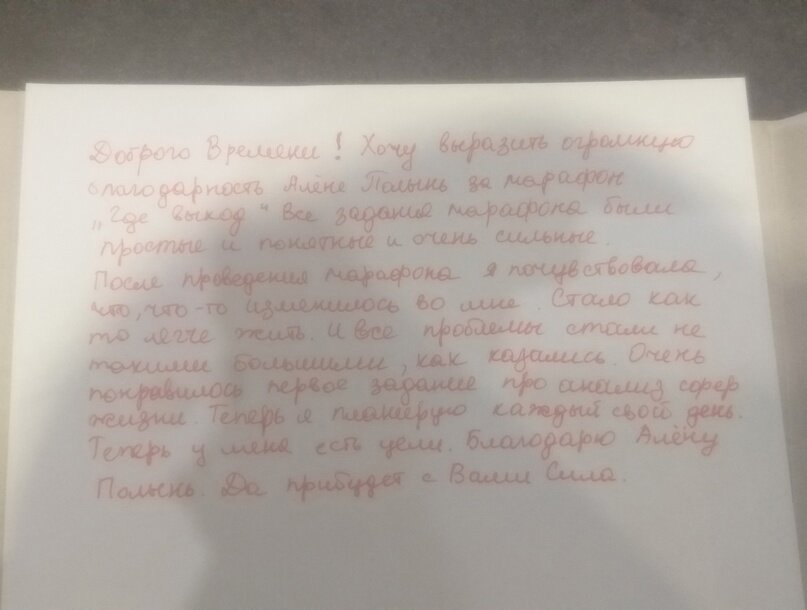 Доброго Времени! Хочу выразить огромную
благодарность Алёне Полынь за марафон
„Где выход“ Все задания марафона были
простые и понятные и очень сильные.
После проведения марафона я почувствовала,
что, что-то изменилось во мне. Стало как
то легче жить. И все проблемы стали не
такими большими, как казались. Очень
понравилось первое задание про анализ сфер
жизни. Теперь я планирую каждый свой день.
Теперь у меня есть цели. Благодарю Алёну
Полынь. Да прибудет с Вами Сила.